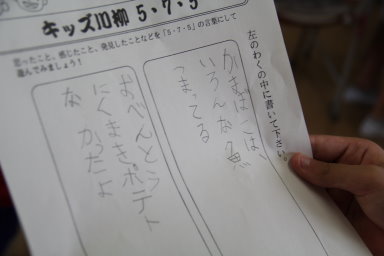 キッズ川柳 5・7・5
思ったこと、感じたこと、発見したことなどを「5・7・5」の言葉にして
遊んでみましょう！
左のわくの中に書いて下さい。
かまぼこは、
いろんな魚
つまってる
おべんとう
にくまきポテト
な かったよ